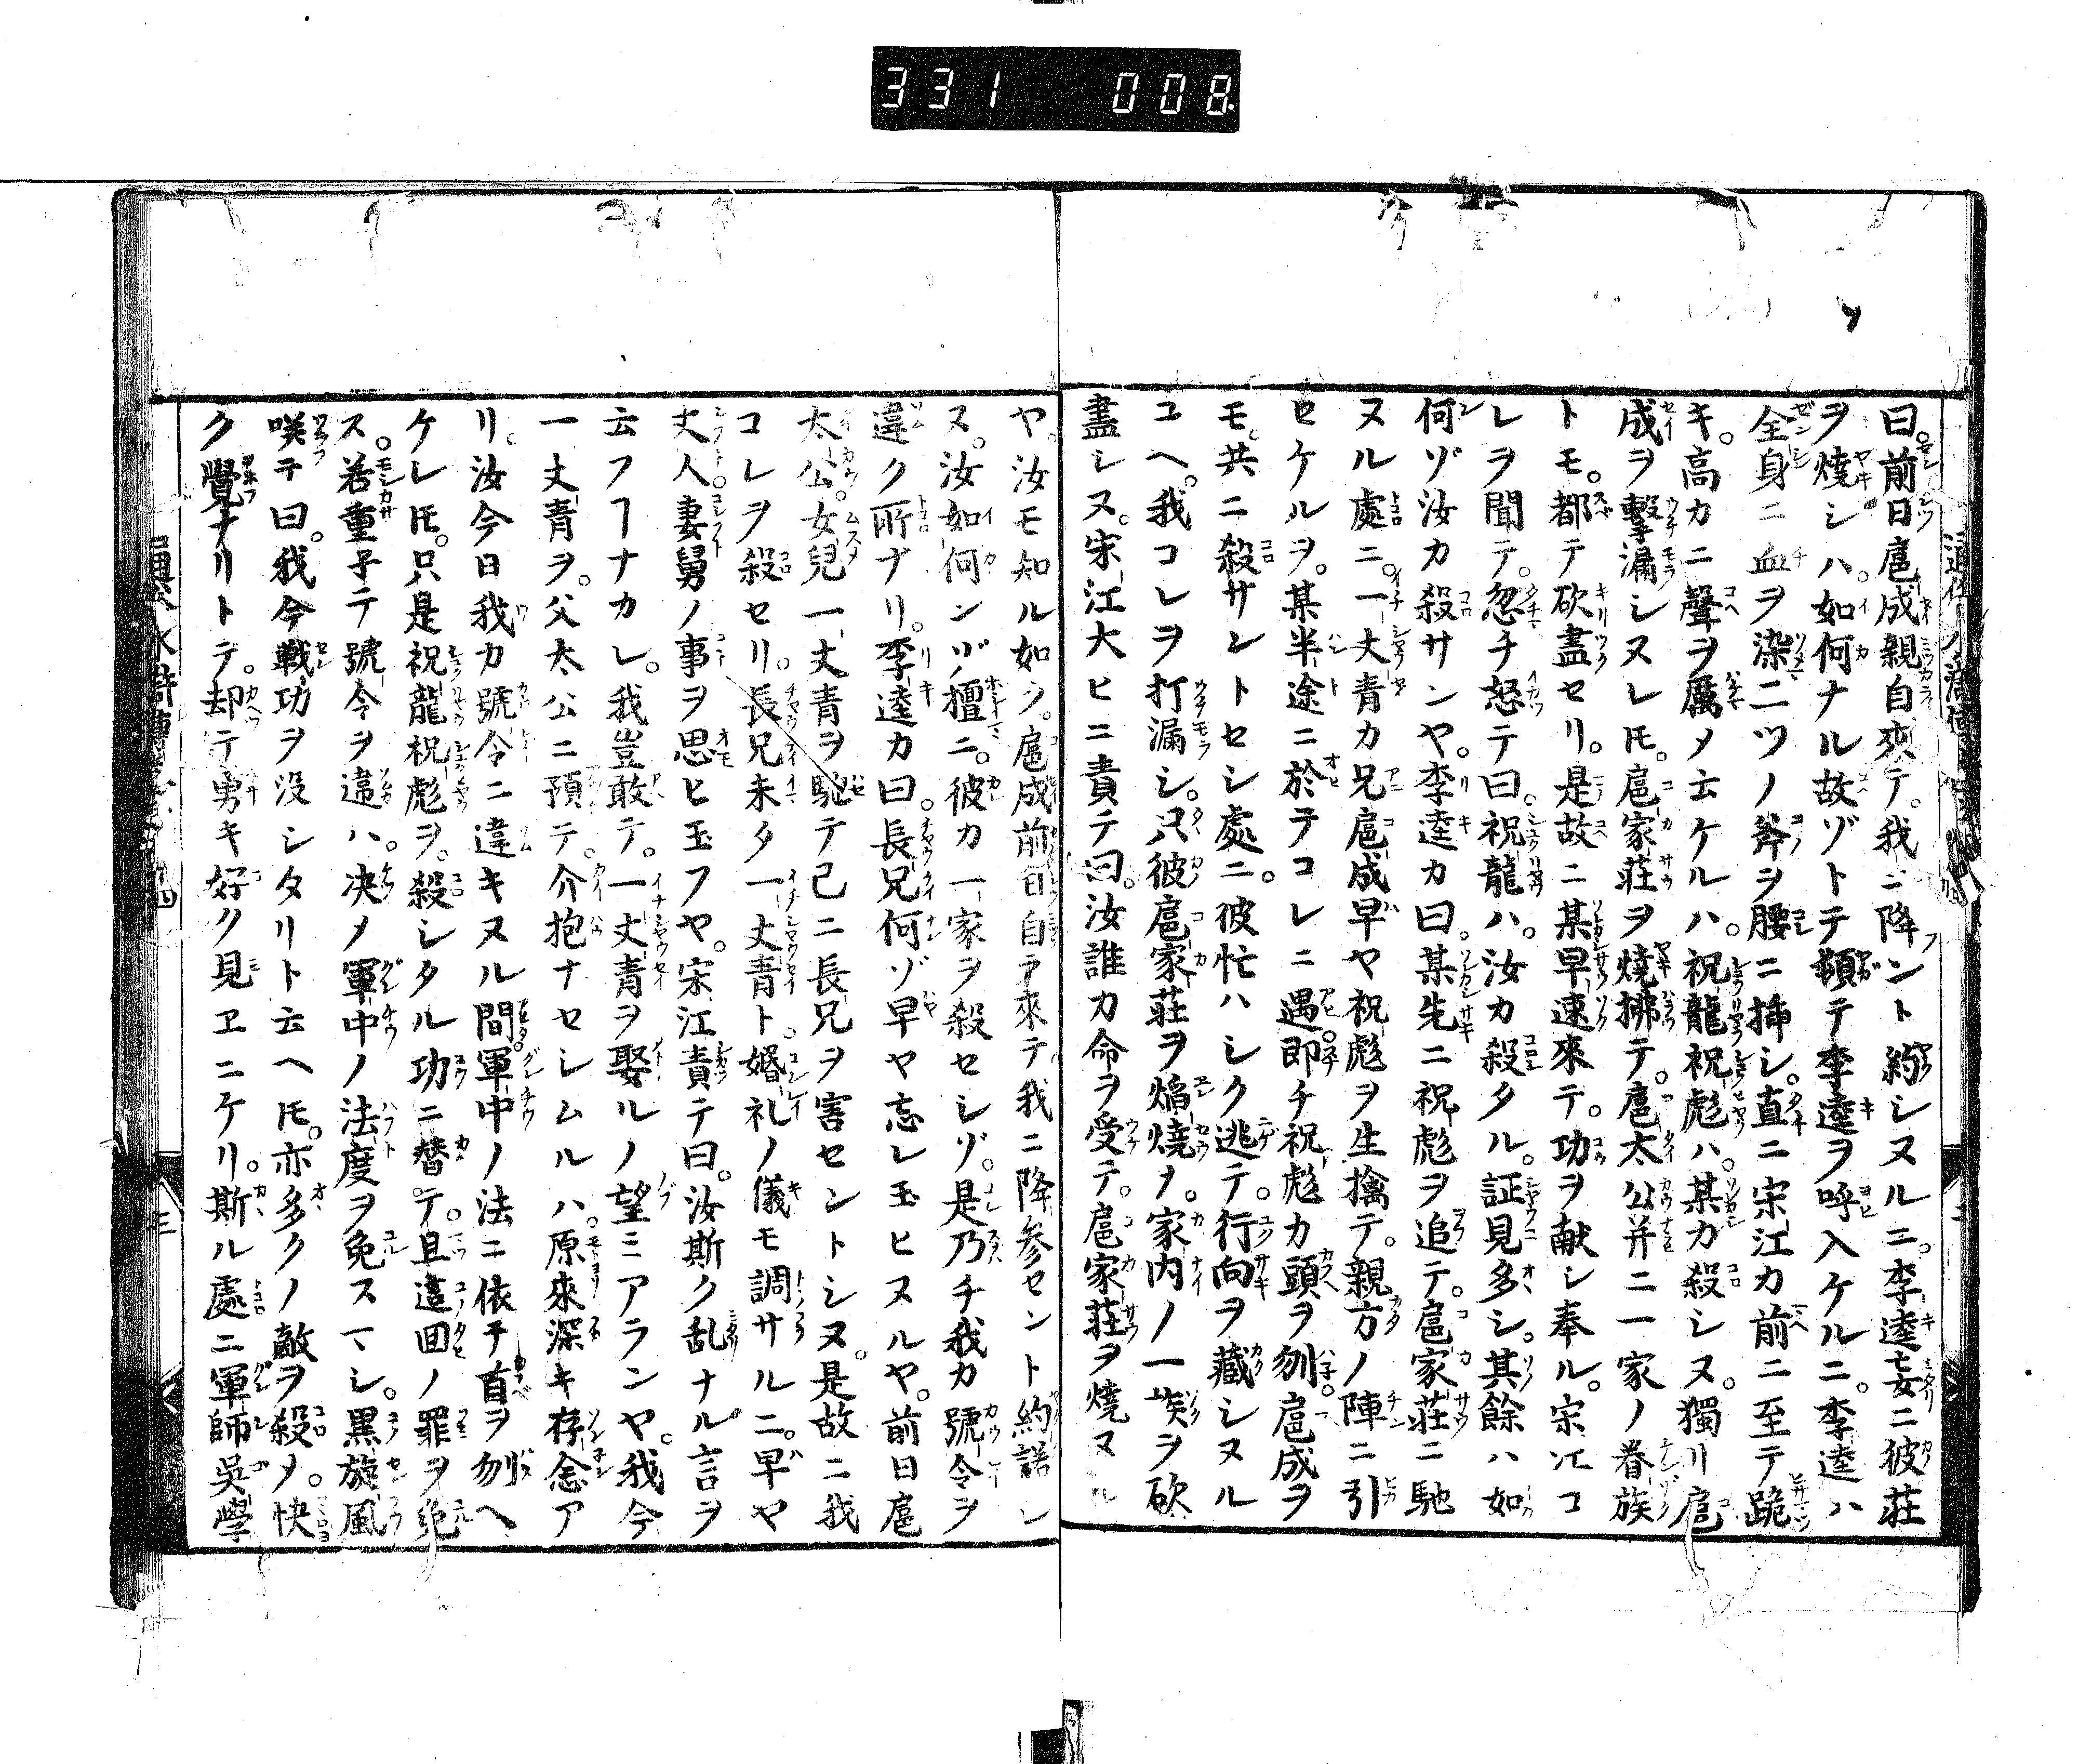 331 008
曰。前日扈成親自來テ。我ニ降ント約シヌルニ。李逵妄ニ彼莊
ヲ燒シハ。如何ナル故ゾトテ頓テ李逵ヲ呼入ケルニ。李逵ハ
全身ニ血ヲ染二ツノ斧ヲ腰ニ插シ。直ニ宋江カ前ニ至テ跪
キ。高カニ聲ヲ厲メ云ケルハ。祝龍祝彪ハ。某カ殺シヌ。獨リ扈
成ヲ擊漏シヌレ𪜈。扈家莊ヲ燒拂テ。扈太公并ニ一家ノ眷族
トモ。都テ砍盡セリ。是故ニ某早速來テ。功ヲ献シ奉ル。宋江コ
レヲ聞テ。忽チ怒テ曰。祝龍ハ。汝カ殺タル。証見多シ。其餘ハ如
何ゾ汝カ殺サンヤ。李逵カ曰。某先ニ祝彪ヲ追テ。扈家莊ニ馳
ヌル處ニ。一丈青カ兄扈成早ヤ祝彪ヲ生擒テ。親方ノ陣ニ引
セケルヲ。某半途ニ於テコレニ遇。即チ祝彪カ頭ヲ刎。扈成ヲ
モ。共ニ殺サントセシ處ニ。彼忙ハシク逃テ。行向ヲ藏シヌル
ユヘ。我コレヲ打漏シ。只彼扈家莊ヲ焔燒メ。家內ノ一族ヲ砍
盡シヌ。宋江大ヒニ責テ曰。汝誰カ命ヲ受テ。扈家莊ヲ燒ヌル
ヤ。汝モ知ル如シ。扈成前日自ラ來テ我ニ降参セント約諾シ
ヌ。汝如何ンゾ擅ニ。彼カ一家ヲ殺セシゾ。是乃チ我カ號令ヲ
違ク所ナリ。李逵カ曰。長兄何ゾ早ヤ忘レ玉ヒヌルヤ。前日扈
太公。女兒一丈青ヲ馳テ已ニ長兄ヲ害セントシヌ。是故ニ我
コレヲ殺セリ。長兄未タ一丈青ト。婚礼ノ儀モ調サルニ。早ヤ
丈人妻舅ノ事ヲ思ヒ玉フヤ。宋江責テ曰。汝斯ク乱ナル言ヲ
云フヿナカレ。我豈敢テ。一丈青ヲ娶ルノ望ミアランヤ。我今
一丈青ヲ。父太公ニ預テ。介抱ナセシムルハ。原來深キ存念ア
リ。汝今日我カ號令ニ違キヌル間。軍中ノ法ニ依テ首ヲ刎ヘ
ケレ𪜈。只是祝龍祝彪ヲ。殺シタル功ニ替テ。且這囬ノ罪ヲ免
ス。若重子テ號令ヲ違ハ。决メ軍中ノ法度ヲ免スマシ。黒旋風
咲テ曰。我今戰功ヲ没シタリト云ヘ𪜈。亦多クノ敵ヲ殺メ。快
ク覺ナリトテ。却テ勇キ好ク見ヱニケリ。斯ル處ニ軍師吳學